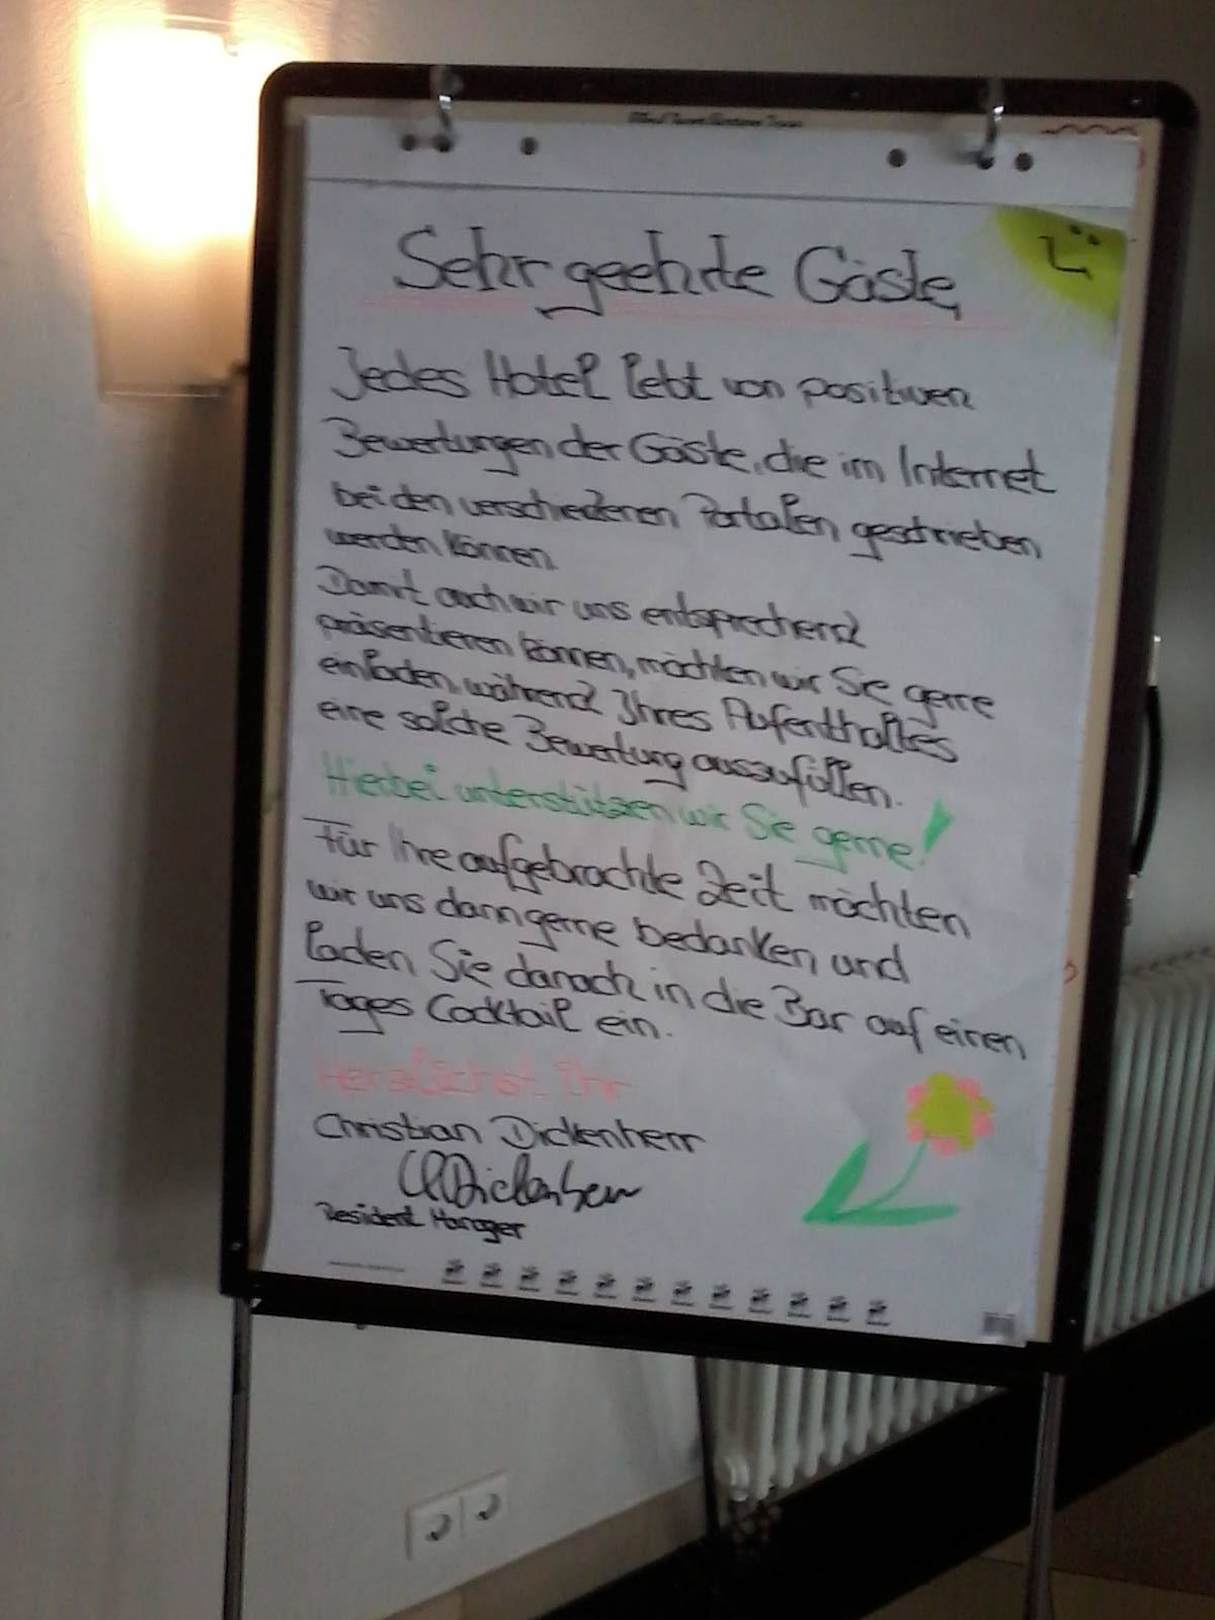 Sehr geehrte Gäste,
Jedes Hotel lebt von positiven
Bewertungen der Gäste, die im Internet
bei den verschiedenen Portalen geschrieben
werden können.
Damit auch wir uns entsprechend
präsentieren können, möchten wir Sie gerne
einladen, während Ihres Aufenthaltes
eine solche Bewertung auszufüllen.
Hierbei unterstützen wir Sie gerne!
Für Ihre aufgebrachte Zeit möchten
wir uns dann gerne bedanken und
laden Sie danach in die Bar auf einen
Tages Cocktail ein.
Herzlichst Ihr
Christian Dickenherr
Resident Manager